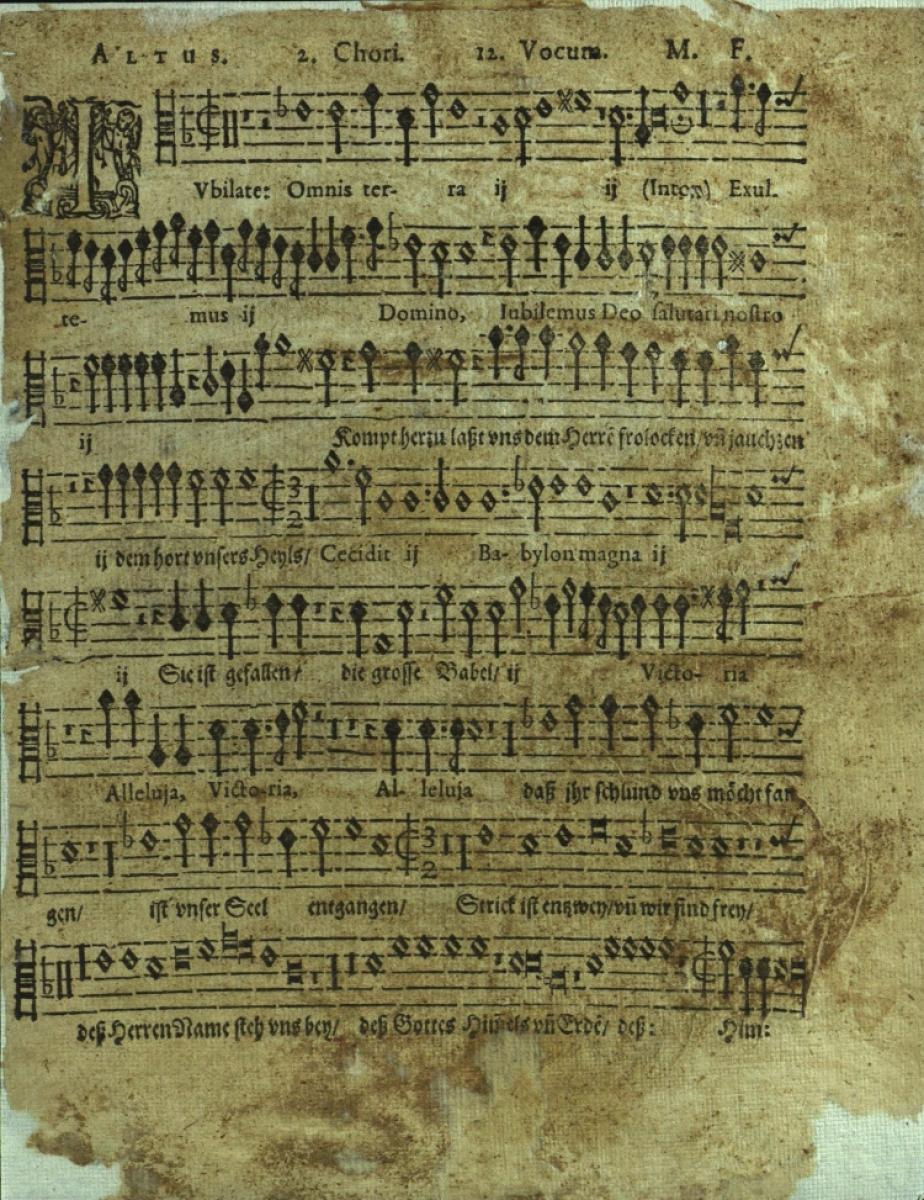 ALTUS. 2. Chori. 12. Vocum. M. F.
IVbilate: Omnis ter- ra ij ij (Inton) Exul-
te- mus ij Domino, Iubilemus Deo salutari nostro
ij Kompt herzu laßt vns dem Herrē frolocken/ vñ jauchzen
ij dem hort vnsers Heyls/ Cecidit ij Ba- bylon magna ij
ij Sie ist gefallen/ die grosse Babel/ ij Victo- ria
Alleluja, Victo-ria, Al- leluja daß jhr schlund vns möcht fan
gen/ ist vnser Seel entgangen/ Strick ist entzwey/ vñ wir sind frey/
deß Herren Name steh vns bey/ deß Gottes Him̃els vñ Erdē/ deß: Him: